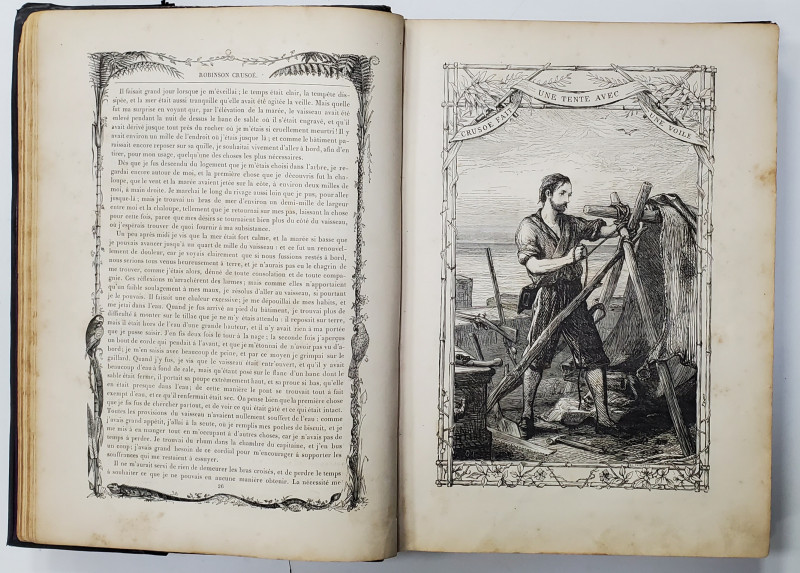 ROBINSON CRUSOÉ.
Il faisait grand jour lorsque je m'éveillai; le temps était clair, la tempête dis-
sipée, et la mer était aussi tranquille qu'elle avait été agitée la veille. Mais quelle
fut ma surprise en voyant que, par l'élévation de la marée, le vaisseau avait été
enlevé pendant la nuit de dessus le banc de sable où il s'était engravé, et qu'il
avait dérivé jusque tout près du rocher où je m'étais si cruellement meurtri! Il y
avait environ un mille de l'endroit où j'étais jusque là; et comme le bâtiment pa-
raissait encore reposer sur sa quille, je souhaitai vivement d'aller à bord, afin d'en
tirer, pour mon usage, quelqu'une des choses les plus nécessaires.
Dès que je fus descendu du logement que je m'étais choisi dans l'arbre, je re-
gardai encore autour de moi, et la première chose que je découvris fut la cha-
loupe, que le vent et la marée avaient jetée sur la côte, à environ deux milles de
moi, à main droite. Je marchai le long du rivage aussi loin que je pus, pour aller
jusque-là; mais je trouvai un bras de mer d'environ un demi-mille de largeur
entre moi et la chaloupe, tellement que je retournai sur mes pas, laissant la chose
pour cette fois, parce que mes désirs se tournaient bien plus du côté du vaisseau,
où j'espérais trouver de quoi fournir à ma subsistance.
Un peu après midi je vis que la mer était fort calme, et la marée si basse que
je pouvais avancer jusqu'à un quart de mille du vaisseau; et ce fut un renouvel-
lement de douleur, car je voyais clairement que si nous fussions restés à bord,
nous serions tous venus heureusement à terre, et je n'aurais pas eu le chagrin de
me trouver, comme j'étais alors, dénué de toute consolation et de toute compa-
gnie. Ces réflexions m'arrachèrent des larmes; mais comme elles n'apportaient
qu'un faible soulagement à mes maux, je résolus d'aller au vaisseau, si pourtant
je le pouvais. Il faisait une chaleur excessive; je me dépouillai de mes habits, et
me jetai dans l'eau. Quand je fus arrivé au pied du bâtiment, je trouvai plus de
difficulté à monter sur le tillac que je ne m'y étais attendu; il reposait sur terre,
mais il était hors de l'eau d'une grande hauteur, et il n'y avait rien à ma portée
que je pusse saisir. J'en fis deux fois le tour à la nage; la seconde fois j'aperçus
un bout de corde qui pendait à l'avant, et que je m'étonnai de n'avoir pas vu d'a-
bord; je m'en saisis avec beaucoup de peine, et par ce moyen je grimpai sur le
gaillard. Quand j'y fus, je vis que le vaisseau était entr'ouvert, et qu'il y avait
beaucoup d'eau à fond de cale, mais qu'étant posé sur le flanc d'un banc dont le
sable était ferme, il portait sa poupe extrêmement haut, et sa proue si bas, qu'elle
en était presque dans l'eau; de cette manière le pont se trouvait tout à fait
exempt d'eau, et ce qu'il renfermait était sec. On pense bien que la première chose
que je fis fut de chercher partout, et de voir ce qui était gâté et ce qui était intact.
Toutes les provisions du vaisseau n'avaient nullement souffert de l'eau: comme
j'avais grand appétit, j'allai à la soute, où je remplis mes poches de biscuit, et je
me mis à en manger tout en m'occupant à d'autres choses, car je n'avais pas de
temps à perdre. Je trouvai du rhum dans la chambre du capitaine, et j'en bus
un coup; j'avais grand besoin de ce cordial pour m'encourager à supporter les
souffrances qui me restaient à essuyer.
Il ne m'aurait servi de rien de demeurer les bras croisés, et de perdre le temps
à souhaiter ce que je ne pouvais en aucune manière obtenir. La nécessité me
26
CRUSOE FAIT UNE TENTE AVEC UNE VOILE